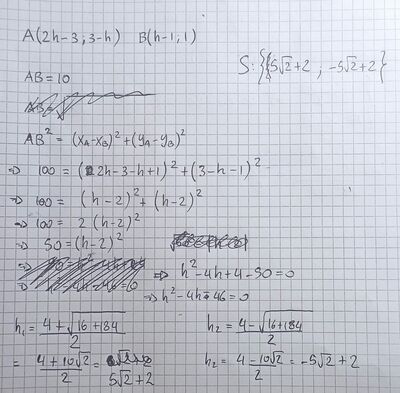 A(2h-3; 3-h) B(h-1, 1)
S: {5√2+2 ; -5√2+2}
AB = 10
AB² = (xA-xB)² + (yA-yB)²
=> 100 = (2h-3-h+1)² + (3-h-1)²
=> 100 = (h-2)² + (h-2)²
=> 100 = 2 (h-2)²
=> 50 = (h-2)²
=> h²-4h+4-50=0
=> h²-4h-46=0
h₁ = 4+√16+184 / 2
h₂ = 4-√16+184 / 2
= 4+10√2 / 2 = 5√2+2
h₂ = 4-10√2 / 2 = -5√2+2